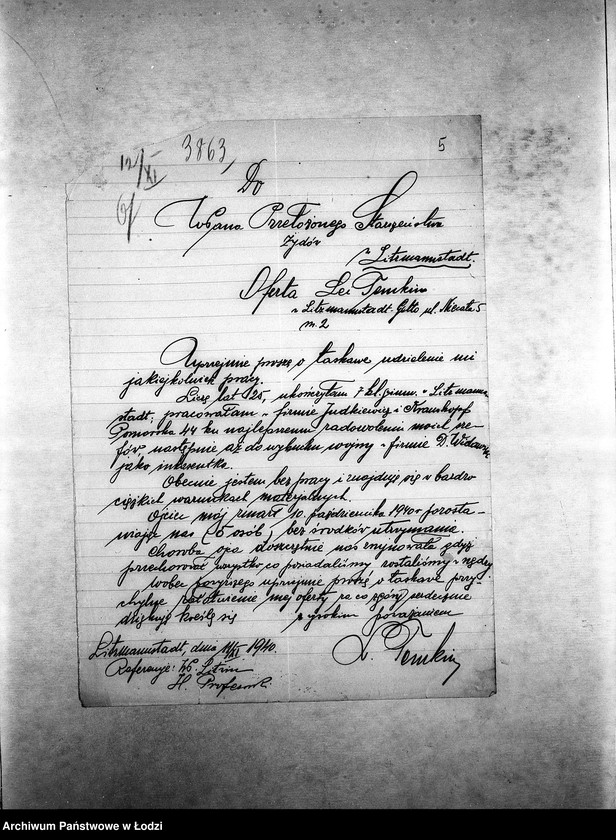 5
12/XI 3863,
Do
WPana Przełożonego Starszeństwa
Żydów
w Litzmannstadt.
Oferta Lei Temkin
w Litzmannstadt-Getto ul.
m. 2
Uprzejmie proszę o łaskawe udzielenie mi
jakiejkolwiek pracy.
Liczę lat 25, ukończyłam 7 kl. gimn. w Litzmann-
stadt; pracowałam w firmie Judkiewicz i
Pomorska 44 ku najlepszemu zadowoleniu moich sze-
fów, następnie aż do wybuchu wojny w firmie D.
jako
Obecnie jestem bez pracy i znajduję się w bardzo
ciężkich warunkach materjalnych.
Ojciec mój zmarł 10. października 1940 r pozosta-
wiając nas (5 osób) bez środków utrzymania.
Choroba ojca doszczętnie nas zrujnowała gdyż
wszystko co posiadaliśmy zostaliśmy w nędzy
wobec powyższego uprzejmie proszę o łaskawe przy-
chylne mej oferty, za co zgóry serdecznie
dziękuję kreślę się z wysokim poważaniem
Litzmannstadt, dnia 11/XI 1940. L. Temkin
Referencje: W.
H.
Archiwum Państwowe w Łodzi